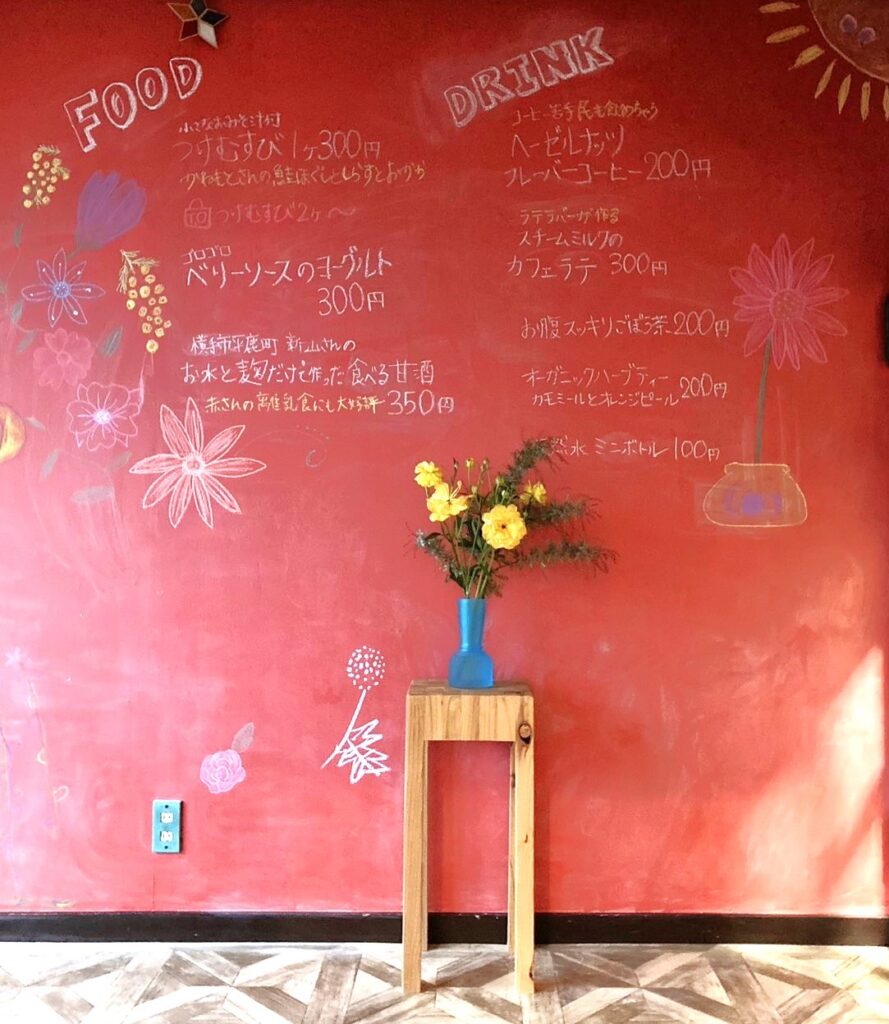 FOOD
小さなおみそ汁付
つけむすび 1ヶ300円
かわもとさんの鮭ほぐしとしらすとおかか
つけむすび2ヶ〜
ゴロゴロ
ベリーソースのヨーグルト
300円
横手市平鹿町 新山さんの
お水と麹だけで作った食べる甘酒
赤さんの離乳食にも大好評 350円
DRINK
コーヒー苦手民も飲めちゃう
ヘーゼルナッツ
フレーバーコーヒー 200円
ラテラバーが作る
スチームミルクの
カフェラテ 300円
お腹スッキリごぼう茶 200円
オーガニックハーブティー
カモミールとオレンジピール 200円
水 ミニボトル 100円